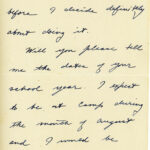 before I decide definitely
about doing it.
Will you please tell
me the dates of your
school year. I expect
to be at camp during
the month of august
and I would be